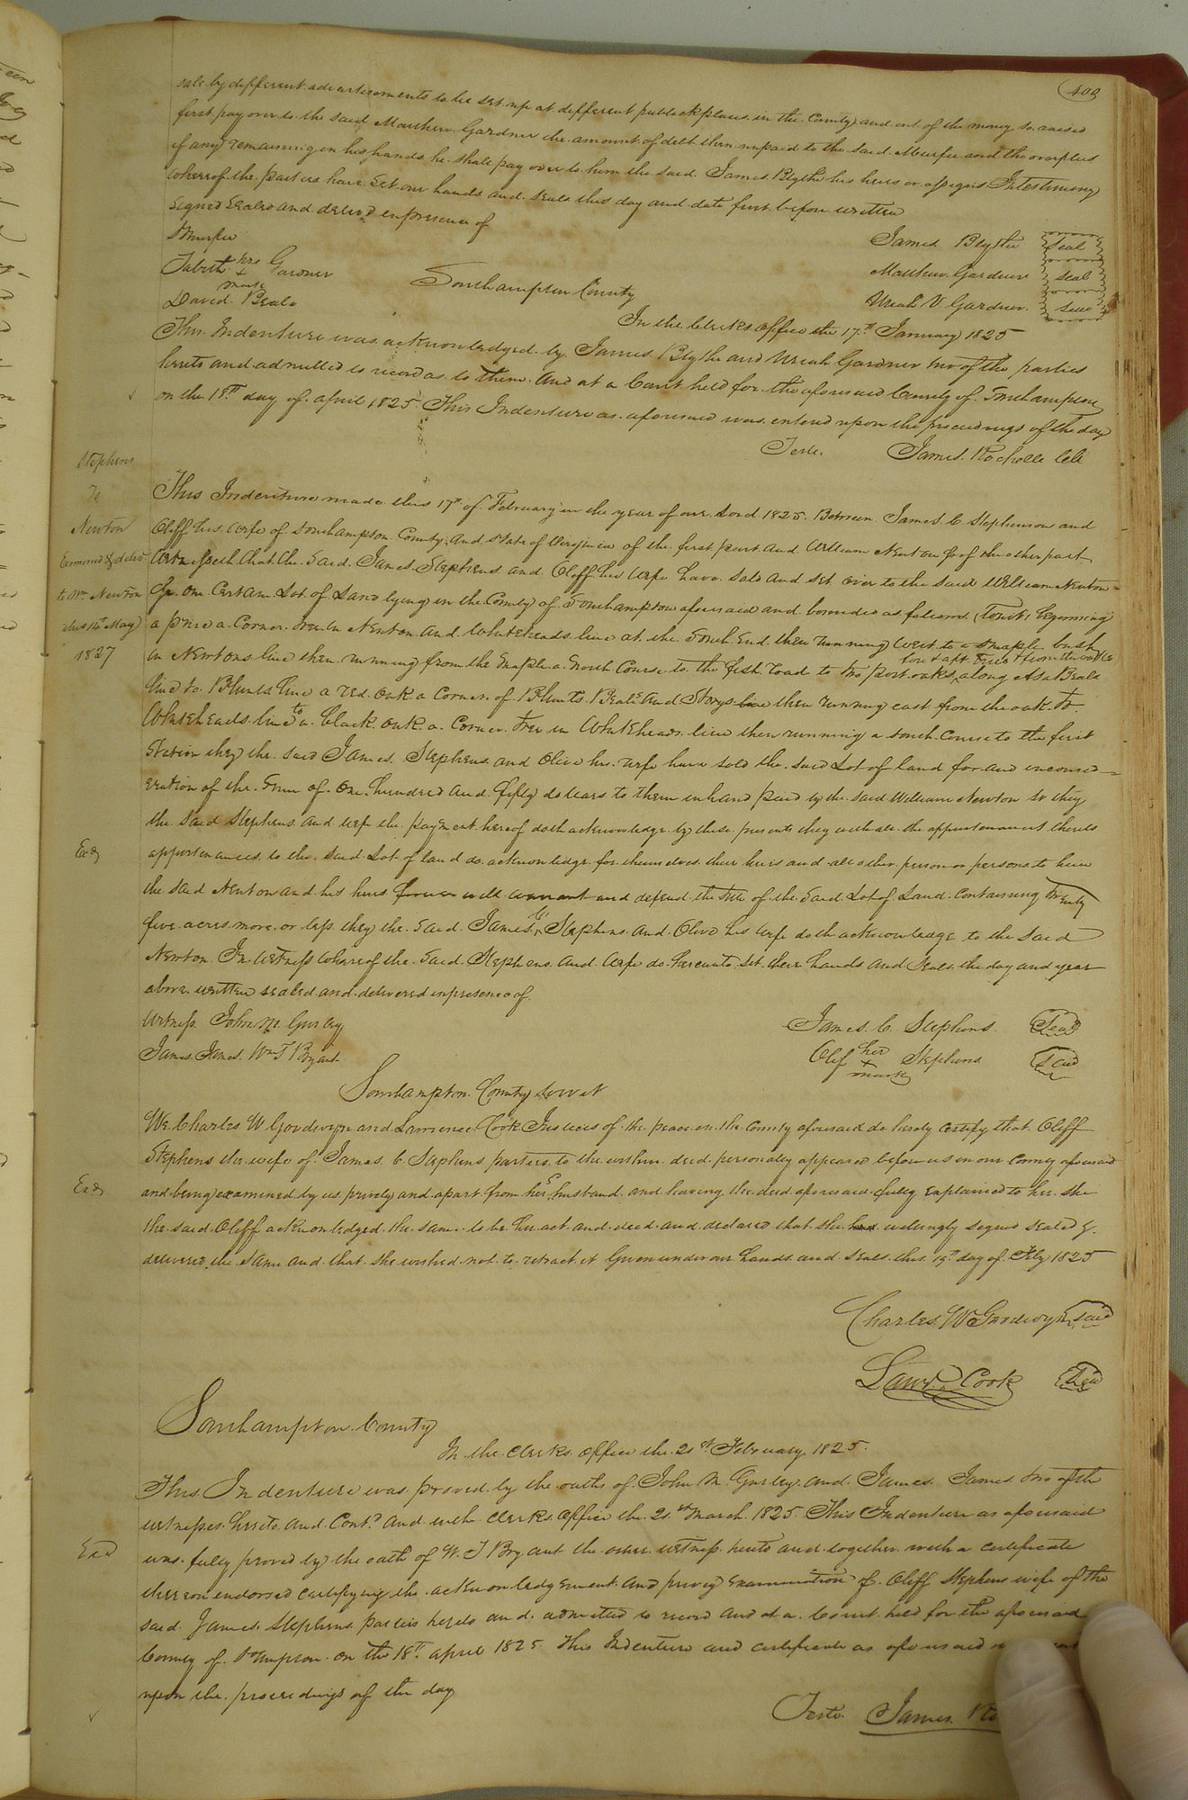 409
sale by different advertisements to be set up at different publick places in the County and out of the money so raised
first pay over to the said Matthew Gardner the amount of debt then unpaid to the said Murfee and the overplus
if any remaining in his hands he shall pay over to him the said James Blythe his heirs or assigns In testimony
whereof the parties have set our hands and seals this day and date first before written
Signed Sealed and delivd in presence of
James Blythe Seal
Murfee
Matthew Gardner seal
Tabith her + mark Gardner
Southampton County
Uriah V Gardner seal
David Beale
In the Clerks office the 17th January 1825
This Indenture was acknowledged by James Blythe and Uriah Gardner two of the parties
hereto and admitted to record as to them. And at a Court held for the aforesaid County of Southampton
on the 18th day of april 1825 This Indenture as aforesaid was entered upon the proceedings of the day
Teste. James Rochelle Clk
Stephens
To
Newton
Examined & deld
to Wm Newton
this 14th May
1827
This Indenture made this 17th of February in the year of our Lord 1825. Between James C Stephenson and
Cliff his wife of Southampton County, and state of Virginia of the first part and William Newton of the other part
Witnesseth that the said James Stephens and Cliff his wife have sold and set over to the said William Newton
one certain Lot of Land lying in the County of Southampton aforesaid and bounded as follows (Towit) beginning
a pine a Corner tree in Newton and Whiteheads line at the South End then running west to a maple bush
in Newtons line then running from the maple a North Course to the fish road to two post oaks, along Asa Beale
line to Blunts line a red oak a Corner of Blunts Beale and Storys line then running east from the oak to
Whiteheads line to a black oak a Corner tree in Whiteheads line then running a south course to the first
Station they the said James Stephens and Olive his wife have sold the said Lot of land for and in consid=
eration of the sum of One hundred and fifty dollars to them in hand paid by the said William Newton to they
the said Stephens and wife the payment hereof doth acknowledge by these presents they with all the appurtenances thereto
Exd
appurtenances to the said Lot of land do acknowledge for themselves their heirs and all other person or persons to him
the said Newton and his heirs forever will warrant and defend the title of the said Lot of Land Containing twenty
five acres more or less they the said James C Stephens and Olive his wife doth acknowledge to the said
Newton In witness whereof the said Stephens and wife do hereunto set their hands and seals the day and year
above written sealed and delivered in presence of
Witness John M Gurley
James C Stephens Seal
James James Wm T Bryant
Clif her + mark Stephens Seal
Southampton County towit
We Charles W Goodwyn and Lawrence Cook Justices of the peace in the County aforesaid do hereby certify that Cliff
Stephens the wife of James C Stephens parties to the within deed personally appeared before us in our County aforesaid
Exd
and being examined by us privily and apart from her husband and having the deed aforesaid fully explained to her she
the said Cliff acknowledged the same to be her act and deed and declared that she had willingly signed sealed &
delivered the same and that she wished not to retract it Given under our hands and seals this 17th day of Feby 1825
Charles W Goodwyn Seal
Lawr. Cook Seal
Southampton County
In the Clerks office the 21st February 1825.
This Indenture was proved by the oaths of John M Gurley and James James two of the
witnesses hereto and Contd and in the Clerks office the 21st March 1825 This Indenture as aforesaid
Exd
was fully proved by the oath of W. T Bryant the other witness hereto and together with a certificate
thereon endorsed certifying the acknowledgement and privy examination of Cliff Stephens wife of the
said James Stephens parties hereto and admitted to record And at a Court held for the aforesaid
County of Sthampton on the 18th april 1825 This Indenture and certificate as aforesaid
upon the proceedings of the day
Teste James